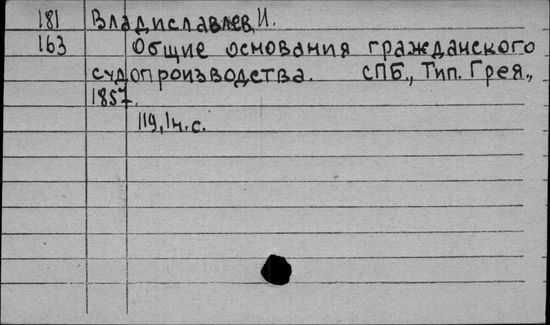 181 Владиславлев, И.
163 Общие основания гражданского
судопроизводства. СПБ., Тип. Грея.,
1857.
119, 1н.с.